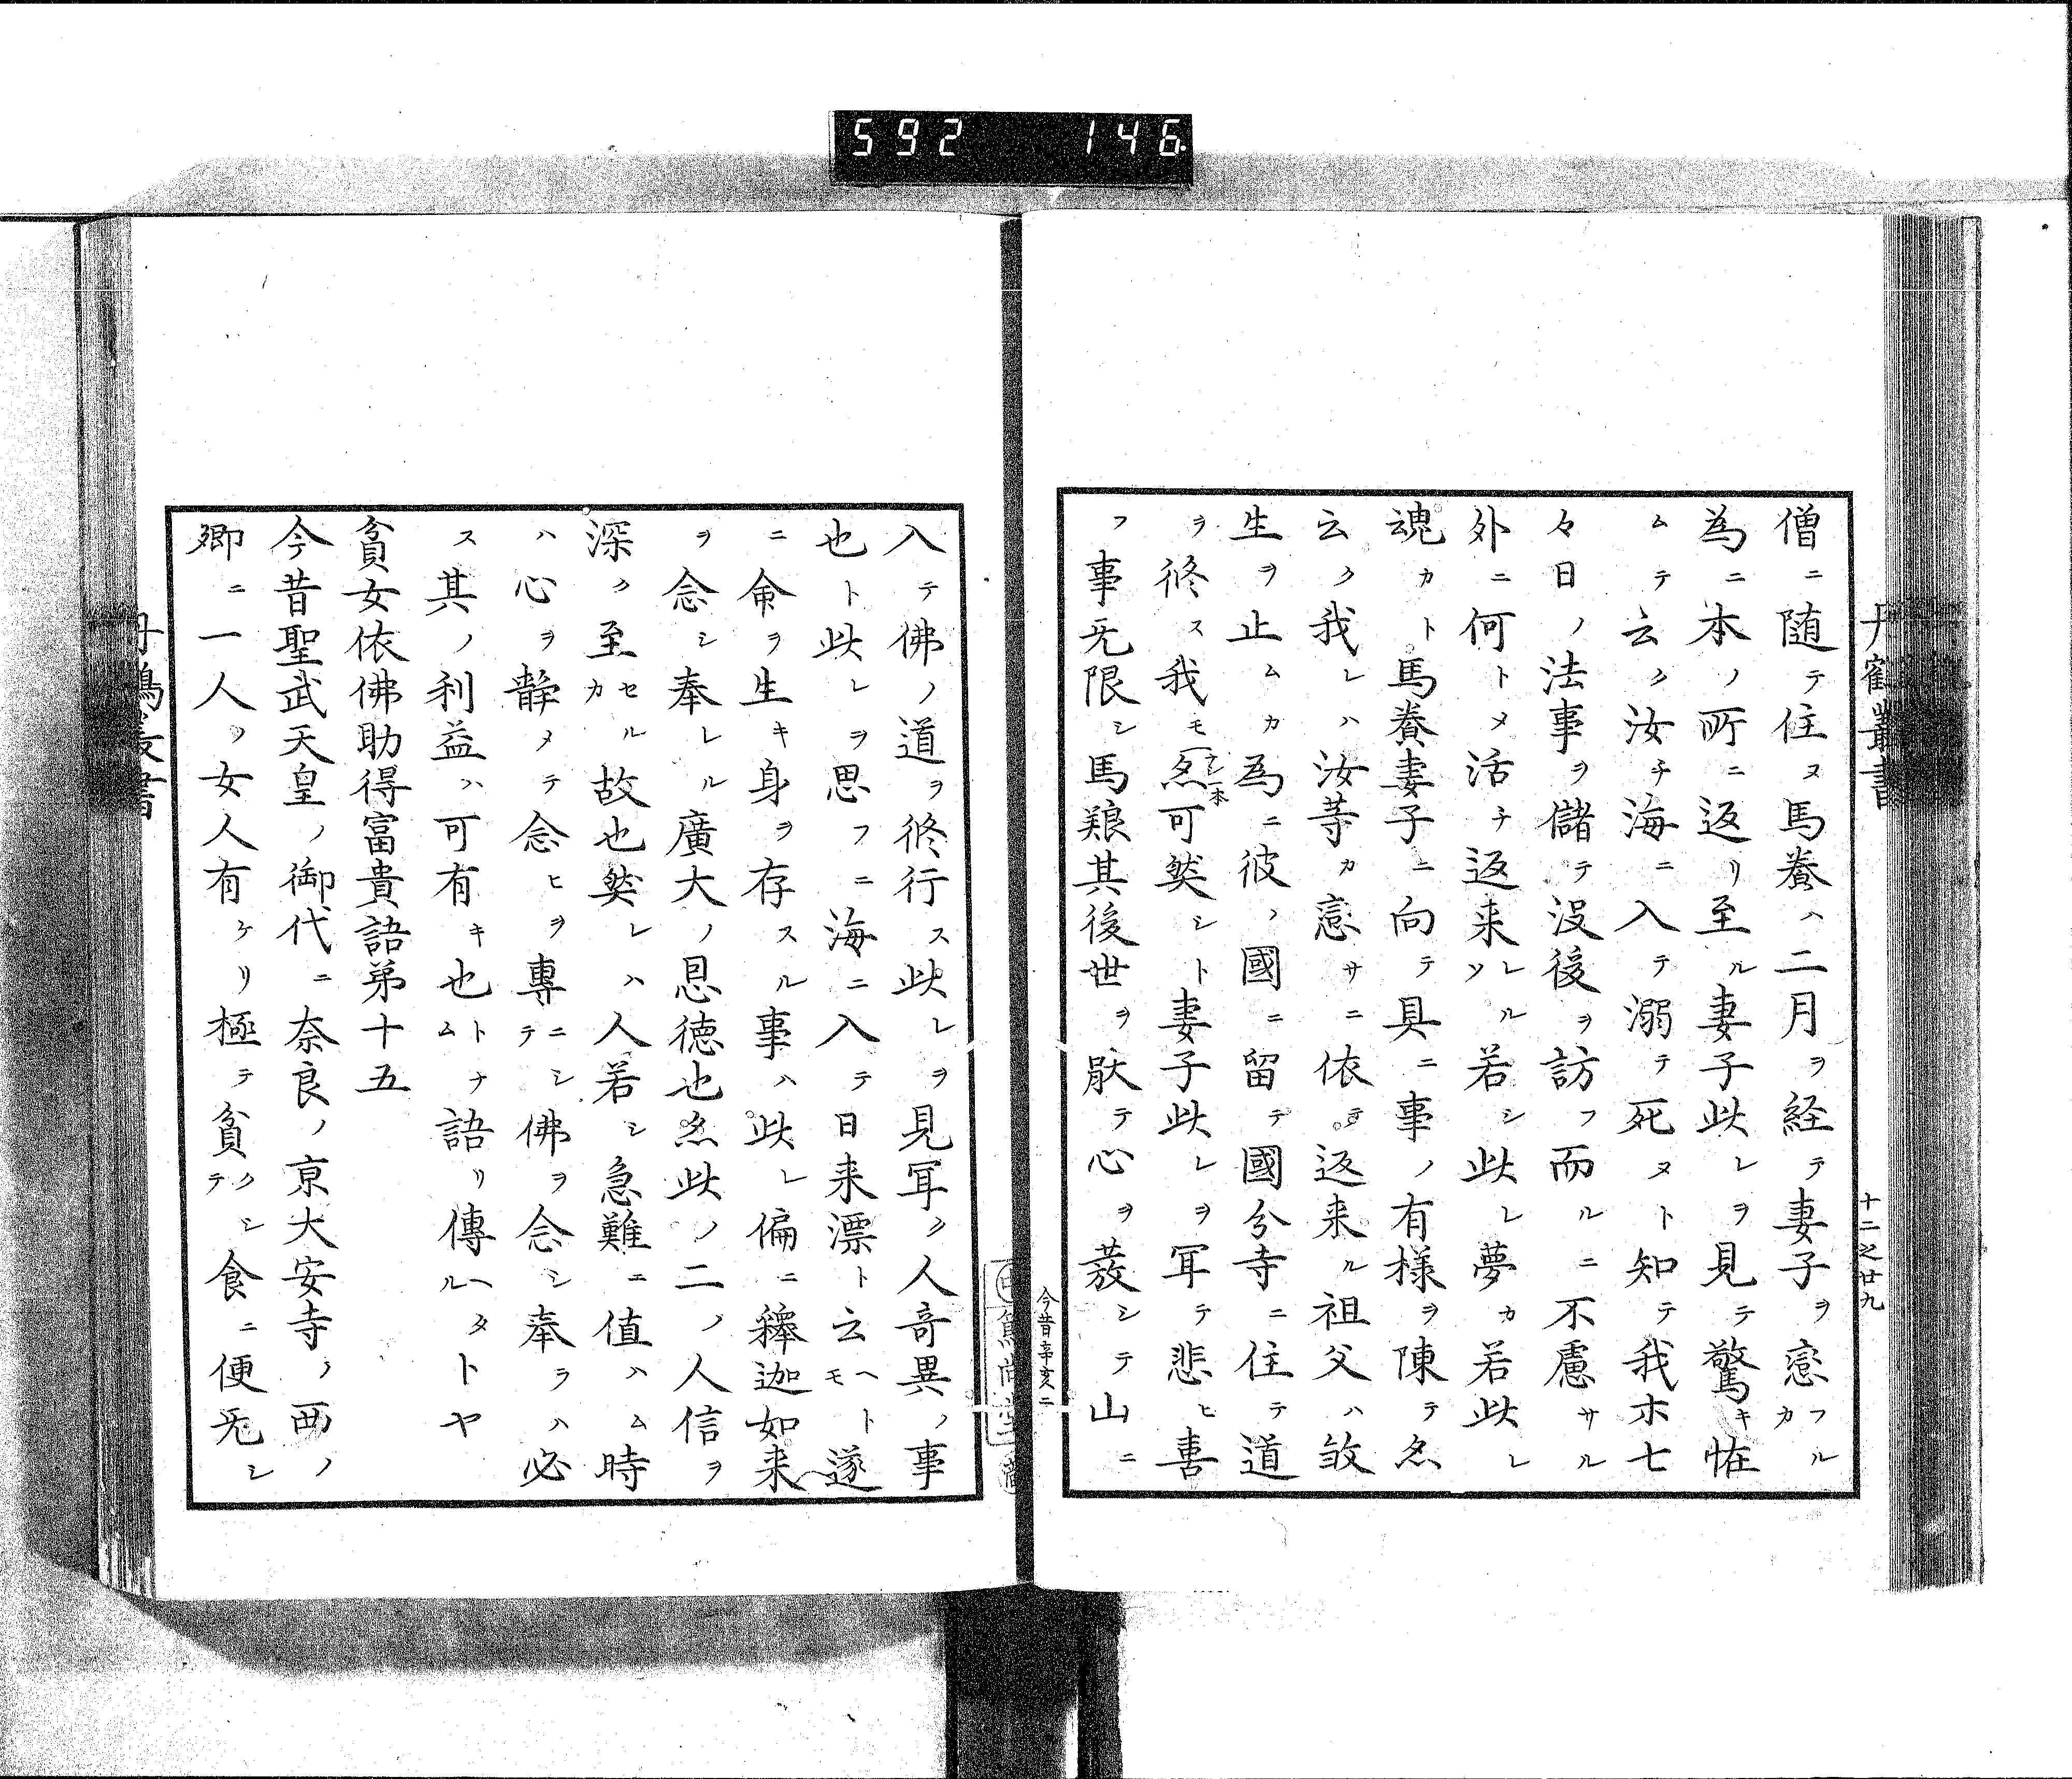 592 146
丹鶴叢書
十二之廿九
僧ニ随テ住ヌ馬養ハ二月ヲ経テ妻子ヲ戀フルカ
為ニ本ノ所ニ返リ至ル妻子此レヲ見テ驚キ恠
ムテ云ク汝チ海ニ入テ溺テ死ヌト知テ我ホ七
々日ノ法事ヲ儲テ没後ヲ訪フ而ルニ不慮サル
外ニ何トメ活チ返来レルソ若シ此レ夢カ若此レ
魂カト馬養妻子ニ向テ具ニ事ノ有様ヲ陳テ亦
云ク我レハ汝等カ戀サニ依テ返来ル祖父ハ敓
生ヲ止ムカ為ニ彼ノ國ニ留テ國分寺ニ住テ道
ヲ修ス我モ亦可然シト妻子此レヲ耳テ悲ヒ喜
ナシ一本
フ事无限シ馬養其後世ヲ猒テ心ヲ葂シテ山ニ
今昔辛亥二
入テ佛ノ道ヲ修行ス此レヲ見耳ク人奇異ノ事
也ト此レヲ思フニ海ニ入テ日来漂ト云ヘトモ遂
ニ命ヲ生キ身ヲ存スル事ハ此レ偏ニ釋迦如来
ヲ念シ奉レル廣大ノ恩徳也亦此ノ二ノ人信ヲ
深ク至セルカ故也然レハ人若シ急難ニ値ハム時
ハ心ヲ静メテ念ヒヲ專ニシテ佛ヲ念シ奉ラハ必
ス其ノ利益ハ可有キ也トナム語リ傳ヘタルトヤ
貧女依佛助得富貴語第十五
今昔聖武天皇ノ御代ニ奈良ノ京大安寺ノ西ノ
郷ニ一人ノ女人有ケリ極テ貧クシテ食ニ便无シ
丹鶴叢書